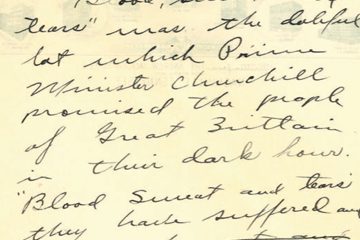 "Blood,
tears" was the doleful
lot which Prime
Minister Churchill
promised the people
of Great Brittain
in their dark hour.
"Blood Sweat and tears"
they have suffered and